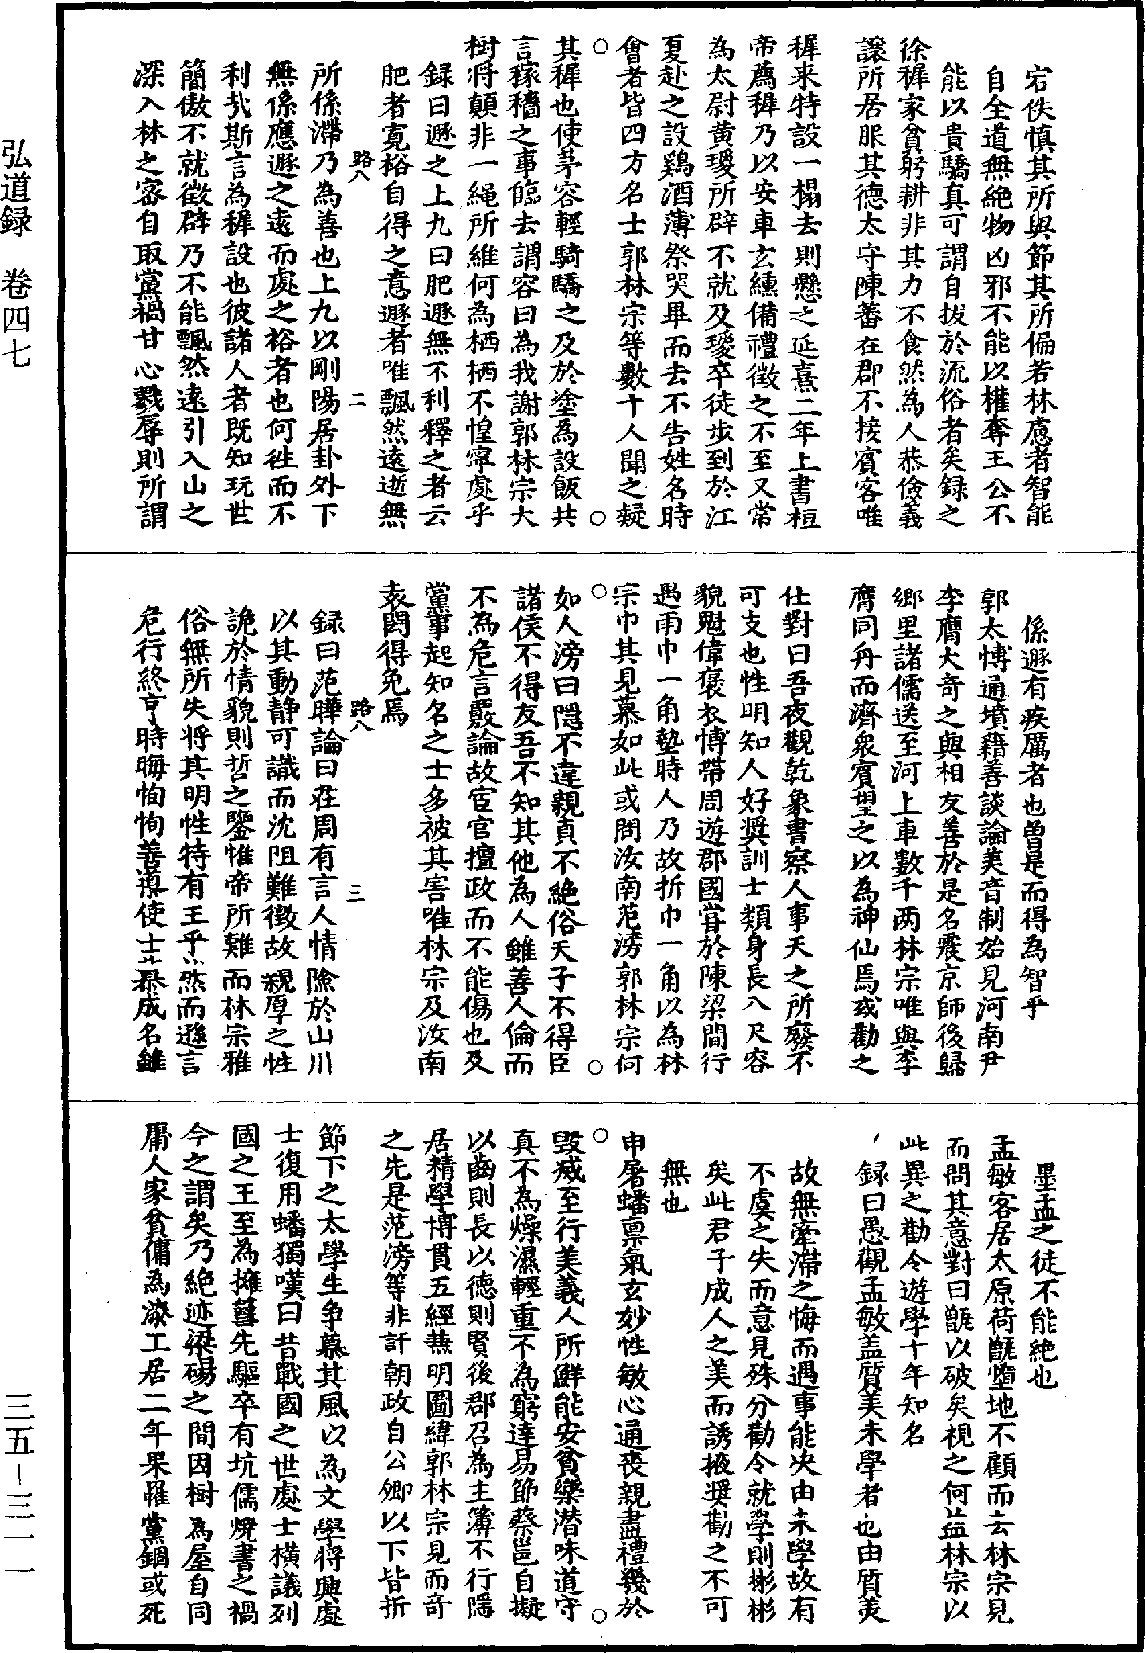 弘道録　卷四七
三五－三一一
宕佚慎其所與節其所偏若林慮者智能
自全道無絶物凶邪不能以權奪王公不
能以貴驕真可謂自拔於流俗者矣録之
徐稺家貧躬耕非其力不食然為人恭儉義
讓所居服其德太守陳蕃在郡不接賓客唯
稺来特設一榻去則懸之延熹二年上書桓
帝薦稺乃以安車玄纁備禮徵之不至又常
為太尉黄瓊所辟不就及瓊卒徒步到於江
夏赴之設鷄酒薄祭哭畢而去不告姓名時
會者皆四方名士郭林宗等數十人聞之疑
○　○
其稺也使茅容輕騎驕之及於塗為設飯共
言稼穡之事臨去謂容曰為我謝郭林宗大
樹将顛非一繩所維何為栖栖不惶寧處乎
録曰遯之上九曰肥遯無不利釋之者云
肥者寛裕自得之意遯者唯飄然遠逝無
路八　二
所係滯乃為善也上九以剛陽居卦外下
無係應遯之遠而處之裕者也何往而不
利㢤斯言為稺設也彼諸人者既知玩世
簡傲不就徵辟乃不能飄然遠引入山之
深入林之密自取黨禍甘心戮辱則所謂
係遯有疾厲者也曽是而得為智乎
郭太博通墳籍善談論美音制始見河南尹
李膺大奇之與相友善於是名震京師後歸
鄉里諸儒送至河上車數千两林宗唯與李
膺同舟而濟衆賓望之以為神仙焉或勸之
仕對曰吾夜觀乾象書察人事天之所廢不
可支也性明知人好奬訓士類身長八尺容
貌魁偉褒衣博帶周遊郡國甞於陳梁間行
遇雨巾一角墊時人乃故折巾一角以為林
宗巾其見慕如此或問汝南范滂郭林宗何
○　○
如人滂曰隠不違親貞不絶俗天子不得臣
諸侯不得友吾不知其他為人雖善人倫而
不為危言覈論故宦官擅政而不能傷也及
黨事起知名之士多被其害唯林宗及汝南
袁閎得免焉
路八　三
録曰范曄論曰莊周有言人情險於山川
以其動静可識而沈阻難徵故親厚之性
詭於情貌則哲之鑒惟帝所難而林宗雅
俗無所失将其明性特有主乎然而遜言
危行終亨時晦恂恂善導使士慕成名雖
墨孟之徒不能絶也
孟敏客居太原荷甑墮地不顧而去林宗見
而問其意對曰甑以破矣視之何益林宗以
此異之勸令遊學十年知名
録曰愚觀孟敏盖質美未學者也由質美
故無牽滯之悔而遇事能决由未學故有
不虞之失而意見殊分勸令就學則彬彬
矣此君子成人之美而誘掖奬勸之不可
無也
申屠蟠禀氣玄妙性敏心通喪親盡禮幾於
○　○
毁滅至行美義人所鮮能安貧樂潜味道守
真不為燥濕輕重不為窮達易節蔡邕自擬
以齒則長以德則賢後郡召為主簿不行隠
居精學博貫五經兼明圖緯郭林宗見而奇
之先是范滂等非訐朝政自公卿以下皆折
節下之太學生争慕其風以為文學将興處
士復用蟠獨嘆曰昔戰國之世處士横議列
國之王至為擁篲先驅卒有坑儒燒書之禍
今之謂矣乃絶迹梁碭之間因樹為屋自同
庸人家貧傭為漆工居二年果罹黨錮或死